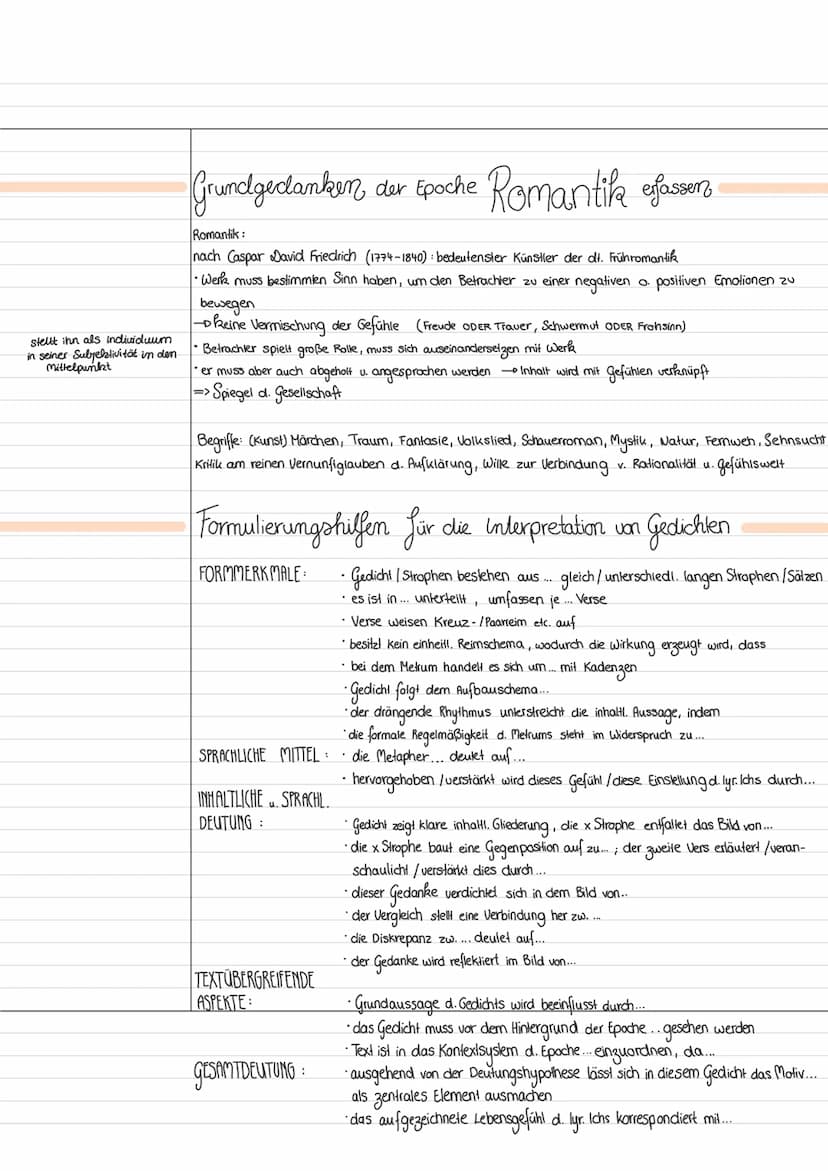 Grundgedanken der Epoche Romantik erfassen
Romantik:
nach Caspar David Friedrich (1774-1840): bedeutenster Künstler der dt. Frühromantik
· Werk muss bestimmten Sinn haben, um den Betrachter zu einer negativen o. positiven Emotionen zu
bewegen
→ keine Vermischung der Gefühle (Freude ODER Trauer, Schwermut ODER Frohsinn)
stellt ihn als Individuum
in seiner Subjektivität in den
Mittelpunkt
· Betrachter spielt große Rolle, muss sich auseinandersetzen mit Werk
· er muss aber auch abgeholt u. angesprochen werden → Inhalt wird mit Gefühlen verknüpft
=> Spiegel d. Gesellschaft
Begriffe: (Kunst) Märchen, Traum, Fantasie, Volkslied, Schauerroman, Mystik, Natur, Fernweh, Sehnsucht
Kritik am reinen Vernunftglauben d. Aufklärung, Wille zur Verbindung v. Rationalität u. Gefühlswelt
Formulierungshilfen für die Interpretation von Gedichten
FORMMERKMALE: · Gedicht / Strophen bestehen aus ... gleich / unterschiedl. langen Strophen / Sätzen
· es ist in ... unterteilt, umfassen je ... Verse
· Verse weisen Kreuz-/Paarreim etc. auf
· besitzt kein einheitl. Reimschema, wodurch die Wirkung erzeugt wird, dass
· bei dem Metrum handelt es sich um ... mit Kadenzen
· Gedicht folgt dem Aufbauschema...
· der drängende Rhythmus unterstreicht die inhaltl. Aussage, indem
· die formale Regelmäßigkeit d. Metrums steht im Widerspruch zu...
SPRACHLICHE MITTEL: · die Metapher... deutet auf...
· hervorgehoben / verstärkt wird dieses Gefühl / diese Einstellung d. lyr. Ichs durch...
INHALTLICHE u. SPRACHL.
DEUTUNG: · Gedicht zeigt klare inhaltl. Gliederung, die x Strophe entfaltet das Bild von...
· die x Strophe baut eine Gegenposition auf zu...; der zweite Vers erläutert / veran-
schaulicht / verstärkt dies durch...
· dieser Gedanke verdichtet sich in dem Bild von..
· der Vergleich stellt eine Verbindung her zw. ...
· die Diskrepanz zw. ... deutet auf...
· der Gedanke wird reflektiert im Bild von...
TEXTÜBERGREIFENDE
ASPEKTE: · Grundaussage d. Gedichts wird beeinflusst durch...
· das Gedicht muss vor dem Hintergrund der Epoche .. gesehen werden
· Text ist in das Kontextsystem d. Epoche... einzuordnen, da...
GESAMTDEUTUNG: · ausgehend von der Deutungshypothese lässt sich in diesem Gedicht das Motiv...
als zentrales Element ausmachen
· das aufgezeichnete Lebensgefühl d. lyr. Ichs korrespondiert mit...